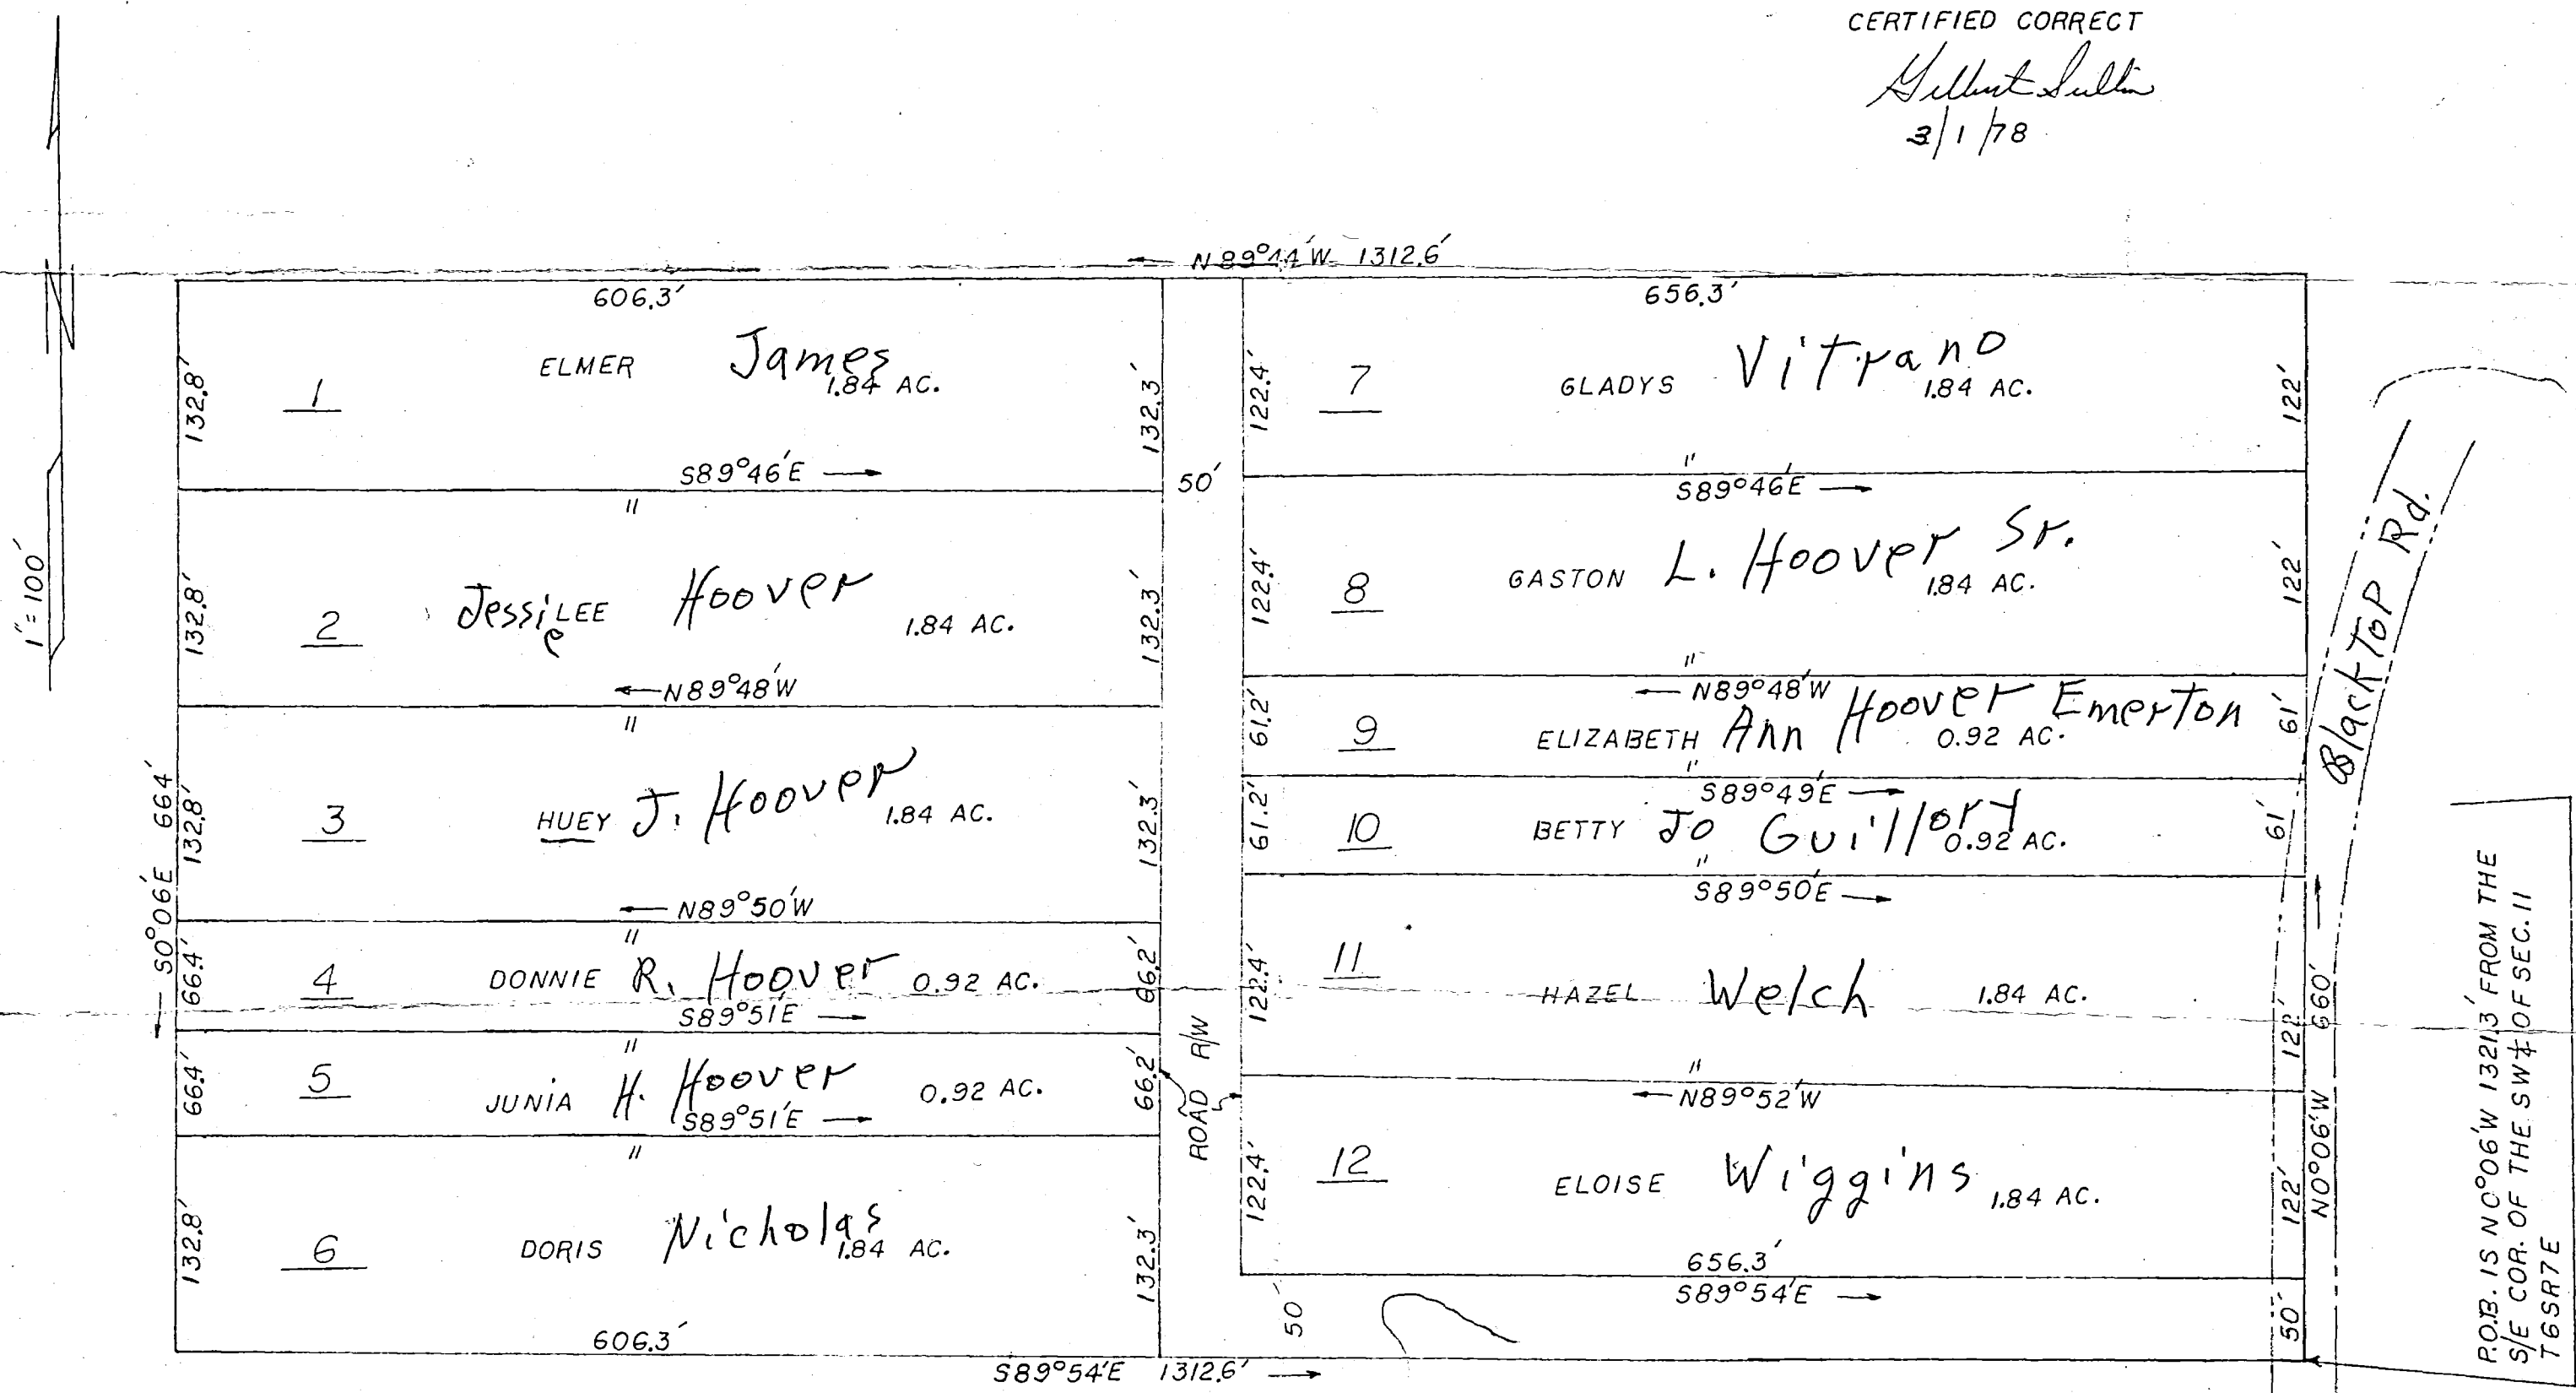 CERTIFIED CORRECT
3/1/78
N 89°44'W 1312.6'
1"=100'
606.3'
132.8'
1
ELMER James
1.84 AC.
132.3'
S89°46'E
"
132.8'
2
Jessie LEE Hoover
1.84 AC.
132.3'
N89°48'W
"
S0°06'E 664'
132.8'
3
HUEY J. Hoover
1.84 AC.
132.3'
N89°50'W
"
66.4'
4
DONNIE R. Hoover 0.92 AC.
66.2'
S89°51'E
"
66.4'
5
JUNIA H. Hoover 0.92 AC.
66.2'
S89°51'E
"
132.8'
6
DORIS Nicholas
1.84 AC.
132.3'
606.3'
50'
ROAD R/W
656.3'
122.4'
7
GLADYS Vitrano
1.84 AC.
122'
"
S89°46'E
122.4'
8
GASTON L. Hoover Sr.
1.84 AC.
122'
"
N89°48'W
61.2'
9
ELIZABETH Ann Hoover Emerton
0.92 AC.
61'
"
S89°49'E
61.2'
10
BETTY Jo Guillory
0.92 AC.
61'
"
S89°50'E
122.4'
11
HAZEL Welch 1.84 AC.
122'
"
N89°52'W
122.4'
12
ELOISE Wiggins 1.84 AC.
122'
656.3'
S89°54'E
50'
50'
S89°54'E 1312.6'
N0°06'W 660'
Black Top Rd.
P.O.B. IS N0°06'W 1321.3' FROM THE
S/E COR. OF THE SW¼ OF SEC. 11
T6SR7E